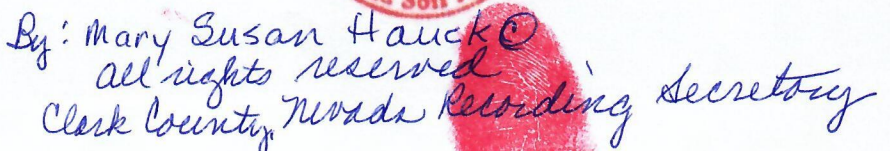 Son
By: Mary Susan Hauck©
all rights reserved
Clark County, Nevada Recording Secretary